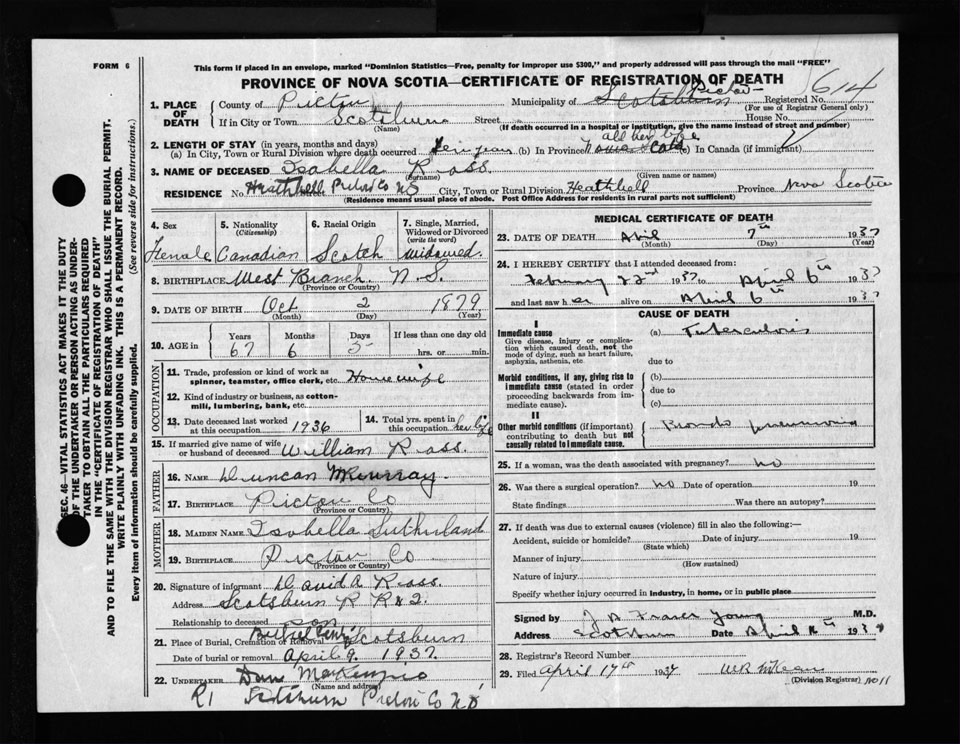 FORM 6
This form if placed in an envelope, marked "Dominion Statistics—Free, penalty for improper use $300," and properly addressed will pass through the mail "FREE"
PROVINCE OF NOVA SCOTIA—CERTIFICATE OF REGISTRATION OF DEATH
614
Pictou
1. PLACE OF DEATH County of Pictou Municipality of Scotsburn Registered No.
(For use of Registrar General only)
If in City or Town Scotsburn Street House No.
(Name) (If death occurred in a hospital or institution, give the name instead of street and number)
2. LENGTH OF STAY (in years, months and days) all her life
(a) In City, Town or Rural Division where death occurred years (b) In Province Nova Scotia (c) In Canada (if immigrant)
3. NAME OF DECEASED Isabella Ross
(Surname) (Given name or names)
RESIDENCE No. Heathbell Pictou Co NS City, Town or Rural Division Heathbell Province Nova Scotia
(Residence means usual place of abode. Post Office Address for residents in rural parts not sufficient)
4. Sex
Female
5. Nationality
(Citizenship)
Canadian
6. Racial Origin
Scotch
7. Single, Married, Widowed or Divorced
(write the word)
Widowed.
8. BIRTHPLACE West Branch N.S.
(Province or Country)
9. DATE OF BIRTH Oct 2 1879
(Month) (Day) (Year)
10. AGE in Years Months Days If less than one day old
67 6 5 hrs. or min.
OCCUPATION
11. Trade, profession or kind of work as spinner, teamster, office clerk, etc. Housewife
12. Kind of industry or business, as cotton-mill, lumbering, bank, etc.
13. Date deceased last worked at this occupation 1936
14. Total yrs. spent in this occupation her life
15. If married give name of wife or husband of deceased William Ross.
FATHER
16. NAME Duncan McMurray
17. BIRTHPLACE Pictou Co
(Province or Country)
MOTHER
18. MAIDEN NAME Isabella Sutherland
19. BIRTHPLACE Pictou Co
(Province or Country)
20. Signature of informant David A Ross.
Address Scotsburn R R # 2.
Relationship to deceased son
21. Place of Burial, Cremation or Removal Scotsburn
Date of burial or removal April 9 1937.
22. UNDERTAKER Dan MacKenzie
(Name and address)
R1 Scotsburn Pictou Co N S
MEDICAL CERTIFICATE OF DEATH
23. DATE OF DEATH April 7th 1937
(Month) (Day) (Year)
24. I HEREBY CERTIFY that I attended deceased from:
February 22nd 1937 to April 6th 1937
and last saw her alive on April 6th 1937
CAUSE OF DEATH
I
Immediate cause (a) Tuberculosis
Give disease, injury or complication which caused death, not the mode of dying, such as heart failure, asphyxia, asthenia, etc.
due to
Morbid conditions, if any, giving rise to immediate cause (stated in order proceeding backwards from immediate cause).
(b)
due to
(c)
II
Other morbid conditions (if important) contributing to death but not causally related to immediate cause.
Broncho pneumonia
25. If a woman, was the death associated with pregnancy? no
26. Was there a surgical operation? no Date of operation 19
State findings Was there an autopsy?
27. If death was due to external causes (violence) fill in also the following:—
Accident, suicide or homicide? Date of injury 19
(State which)
Manner of injury
(How sustained)
Nature of injury
Specify whether injury occurred in industry, in home, or in public place
Signed by J B Fraser Young M.D.
Address Scotsburn Date April 1937
28. Registrar's Record Number
29. Filed April 17th 1937 WR McKean
(Division Registrar) No 11
SEC. 46—VITAL STATISTICS ACT MAKES IT THE DUTY
OF THE UNDERTAKER OR PERSON ACTING AS UNDER-
TAKER TO OBTAIN ALL THE PARTICULARS REQUIRED
IN THE "CERTIFICATE OF REGISTRATION OF DEATH"
AND TO FILE THE SAME WITH THE DIVISION REGISTRAR WHO SHALL ISSUE THE BURIAL PERMIT.
WRITE PLAINLY WITH UNFADING INK. THIS IS A PERMANENT RECORD.
Every item of information should be carefully supplied. (See reverse side for instructions.)